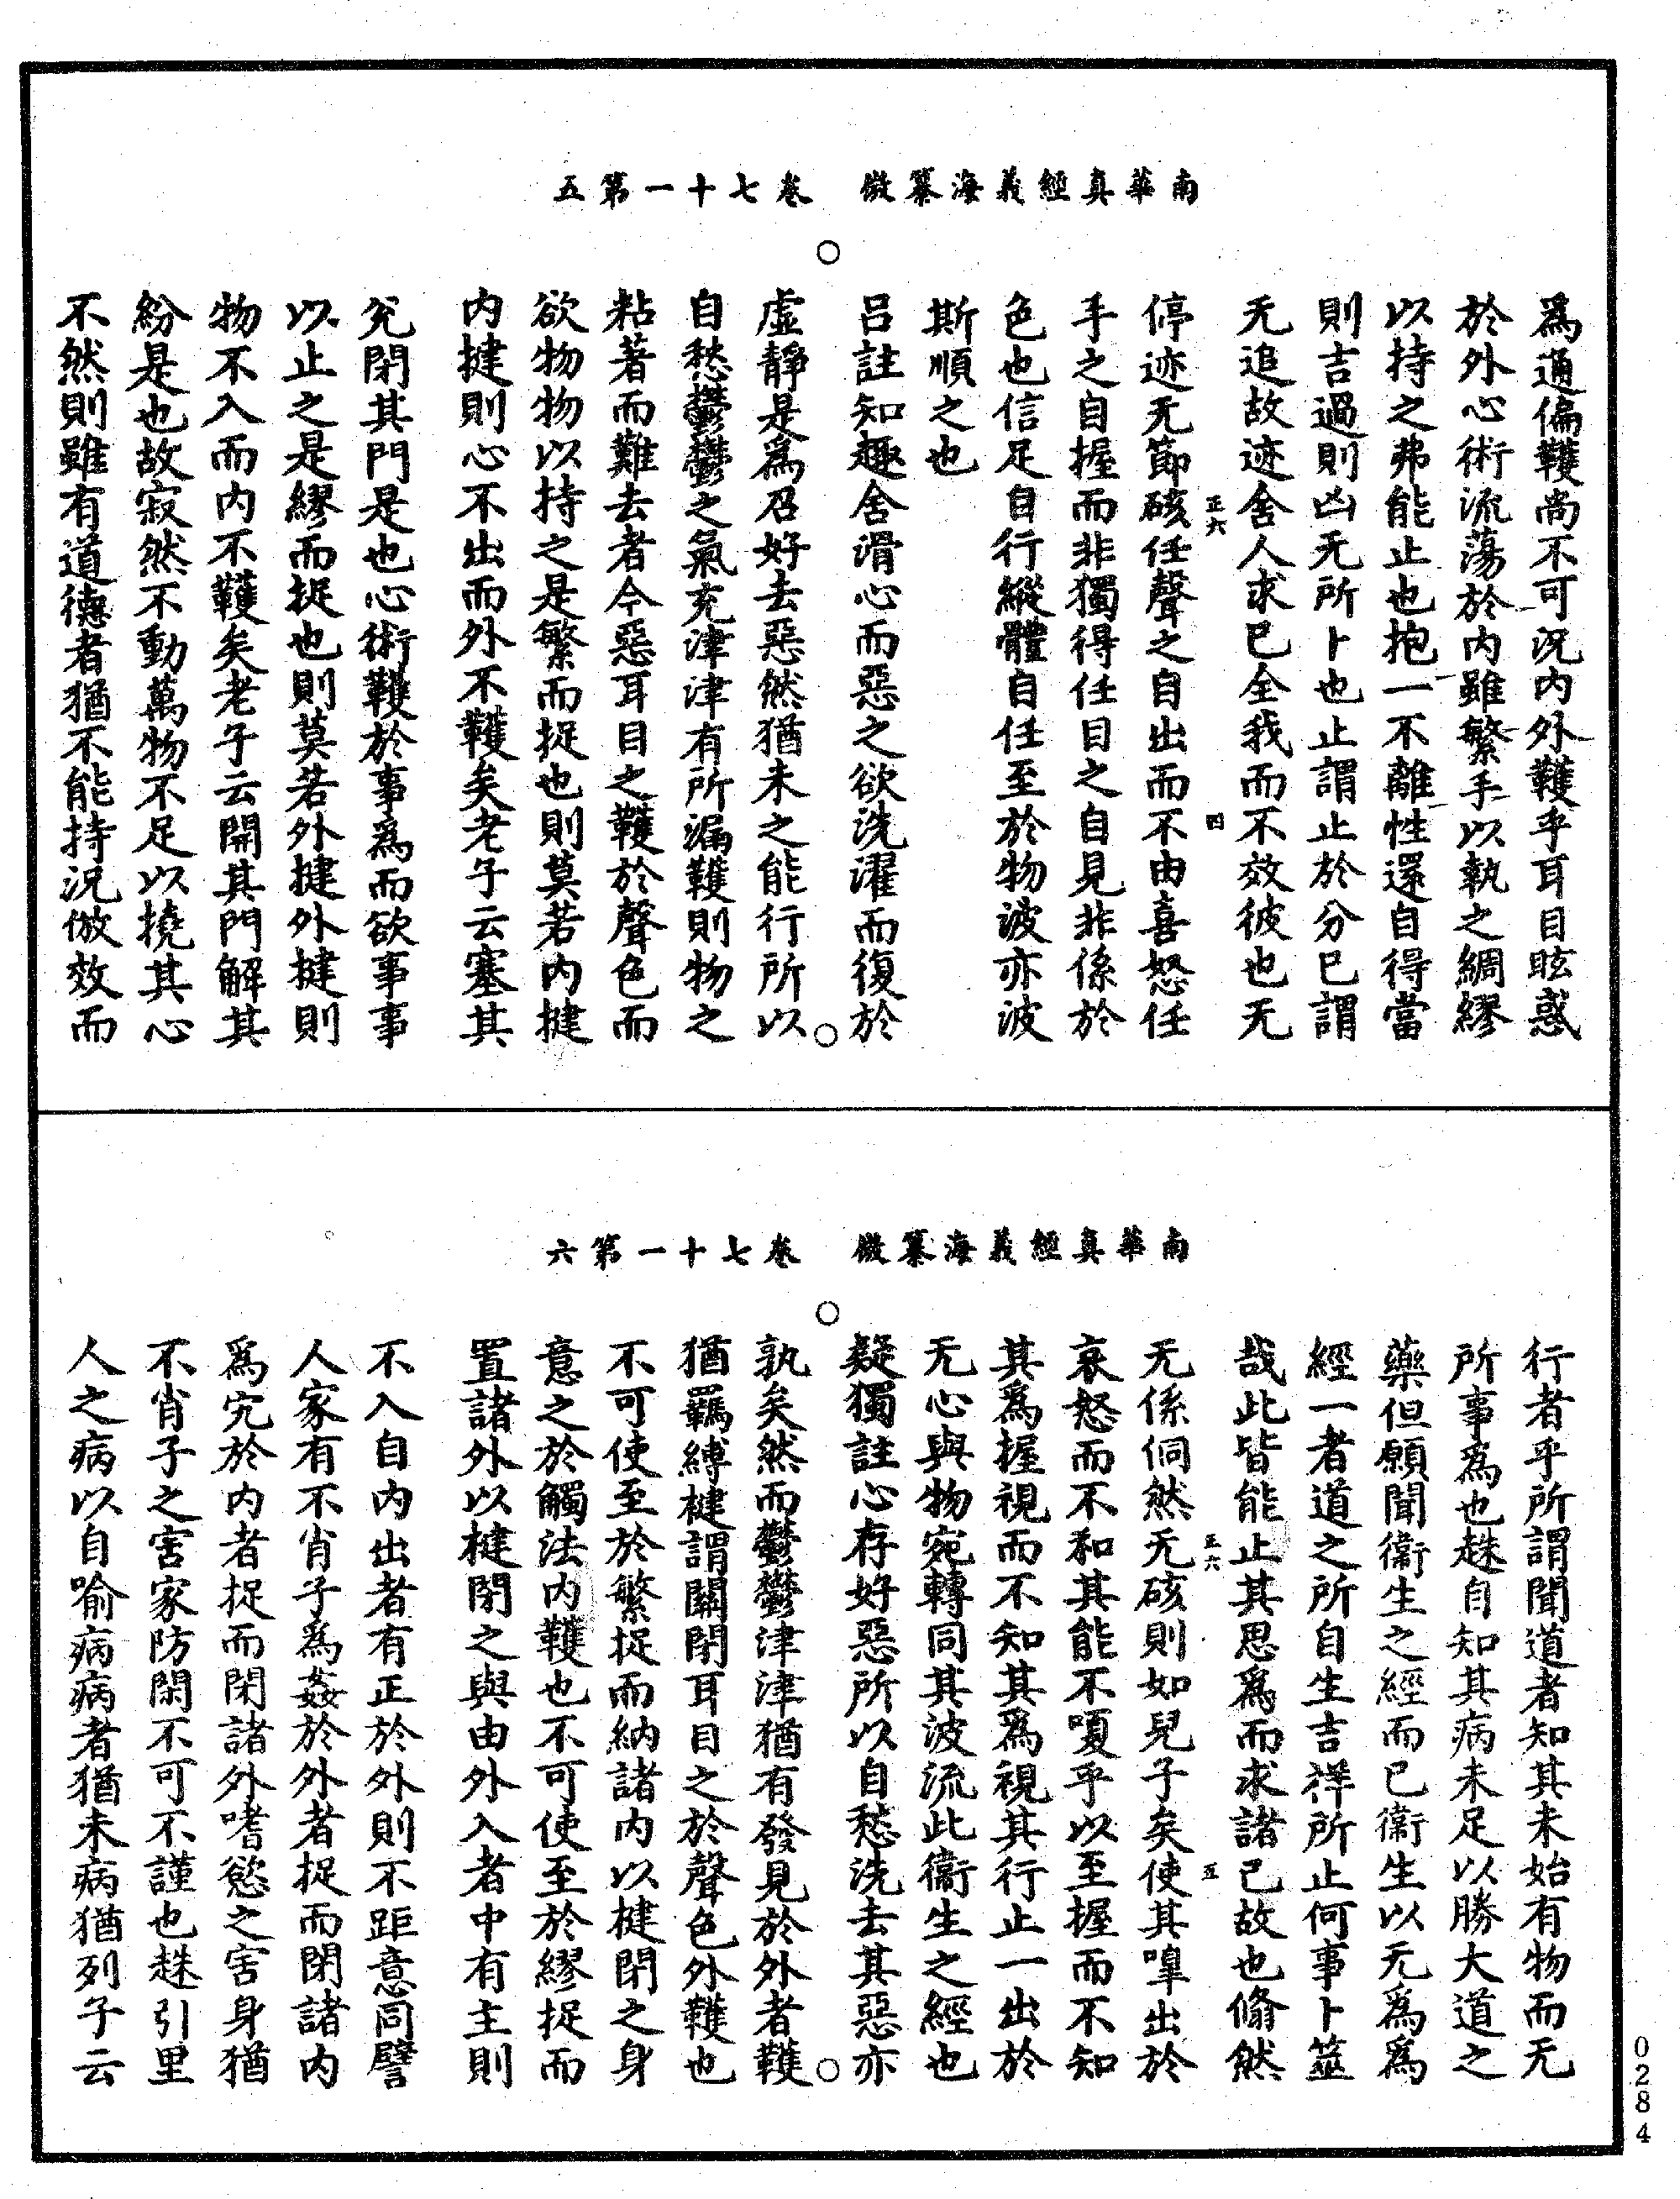 南華真經義海纂微　卷七十一第五
爲通偏韄尚不可況内外韄乎耳目眩惑
於外心術流蕩於内雖繁手以執之綢繆
以持之弗能止也抱一不離性還自得當
則吉過則凶无所卜也止謂止於分已謂
无追故迹舍人求已全我而不效彼也无
正六　四
停迹无節硋任聲之自出而不由喜怒任
手之自握而非獨得任目之自見非係於
色也信足自行縱體自任至於物波亦波
斯順之也
吕註知趣舍滑心而惡之欲洗濯而復於
虚静是爲召好去惡然猶未之能行所以
自愁鬱鬱之氣充津津有所漏韄則物之
粘著而難去者今惡耳目之韄於聲色而
欲物物以持之是繁而捉也則莫若内揵
内揵則心不出而外不韄矣老子云塞其
兌閉其門是也心術韄於事爲而欲事事
以止之是繆而捉也則莫若外揵外揵則
物不入而内不韄矣老子云開其門解其
紛是也故寂然不動萬物不足以撓其心
不然則雖有道德者猶不能持況倣效而
南華真經義海纂微　卷七十一第六
行者乎所謂聞道者知其未始有物而无
所事爲也趎自知其病未足以勝大道之
藥但願聞衛生之經而已衛生以无爲爲
經一者道之所自生吉祥所止何事卜筮
哉此皆能止其思爲而求諸已故也翛然
正六　五
无係侗然无硋則如兒子矣使其嗥出於
哀怒而不和其能不嗄乎以至握而不知
其爲握視而不知其爲視其行止一出於
无心與物宛轉同其波流此衛生之經也
疑獨註心存好惡所以自愁洗去其惡亦
孰矣然而鬱鬱津津猶有發見於外者韄
猶羈縛楗謂關閉耳目之於聲色外韄也
不可使至於繁捉而納諸内以楗閉之身
意之於觸法内韄也不可使至於繆捉而
置諸外以楗閉之與由外入者中有主則
不入自内出者有正於外則不距意同譬
人家有不肖子爲姦於外者捉而閉諸内
爲宄於内者捉而閉諸外嗜慾之害身猶
不肖子之害家防閑不可不謹也趎引里
人之病以自喻病病者猶未病猶列子云
0284